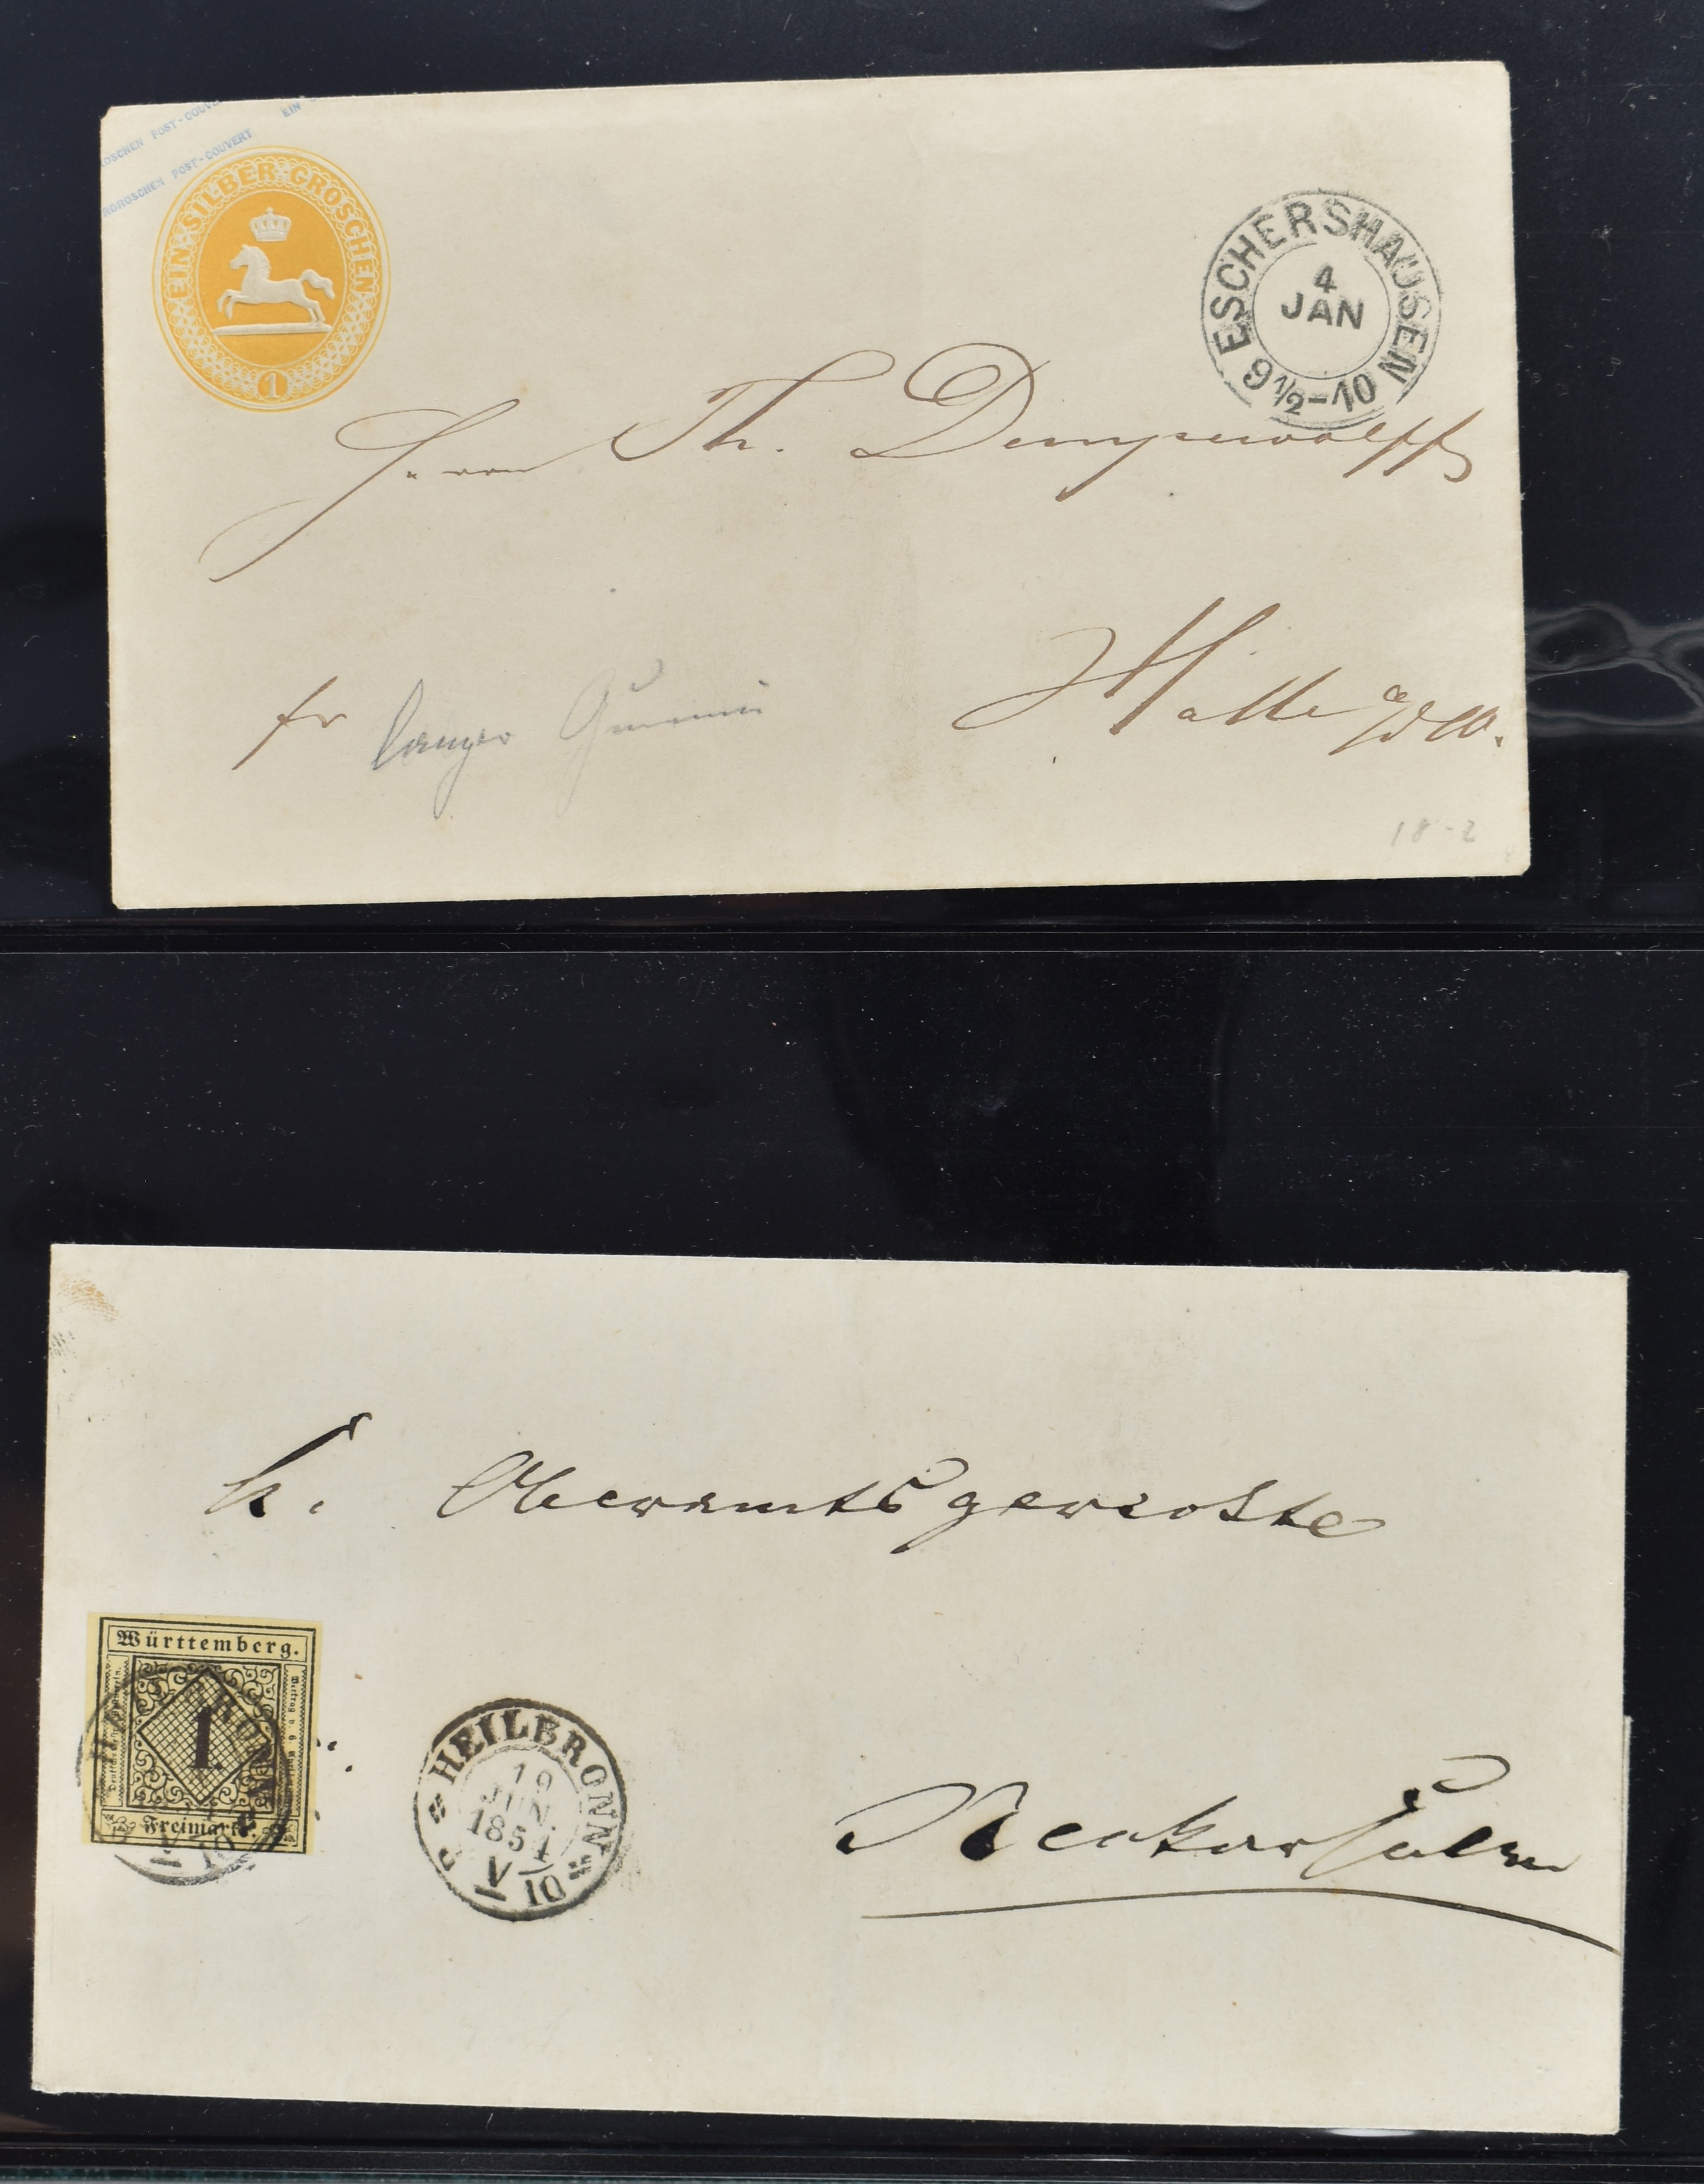 ROSCHEN POST-COUVE
EIN
RGROSCHEN POST-COUVERT
EIN SILBER-GROSCHEN
1
ESCHERSHAUSEN
4
JAN
9 1/2-10
Herrn Th. Dempewolff
fr
langer Gummi
Halle a/W.
18-2
K. Oberamtsgerichte
Württemberg.
1
Freimarke.
HEILBRONN
19
JUN.
1851
V 10
Neckarsulm